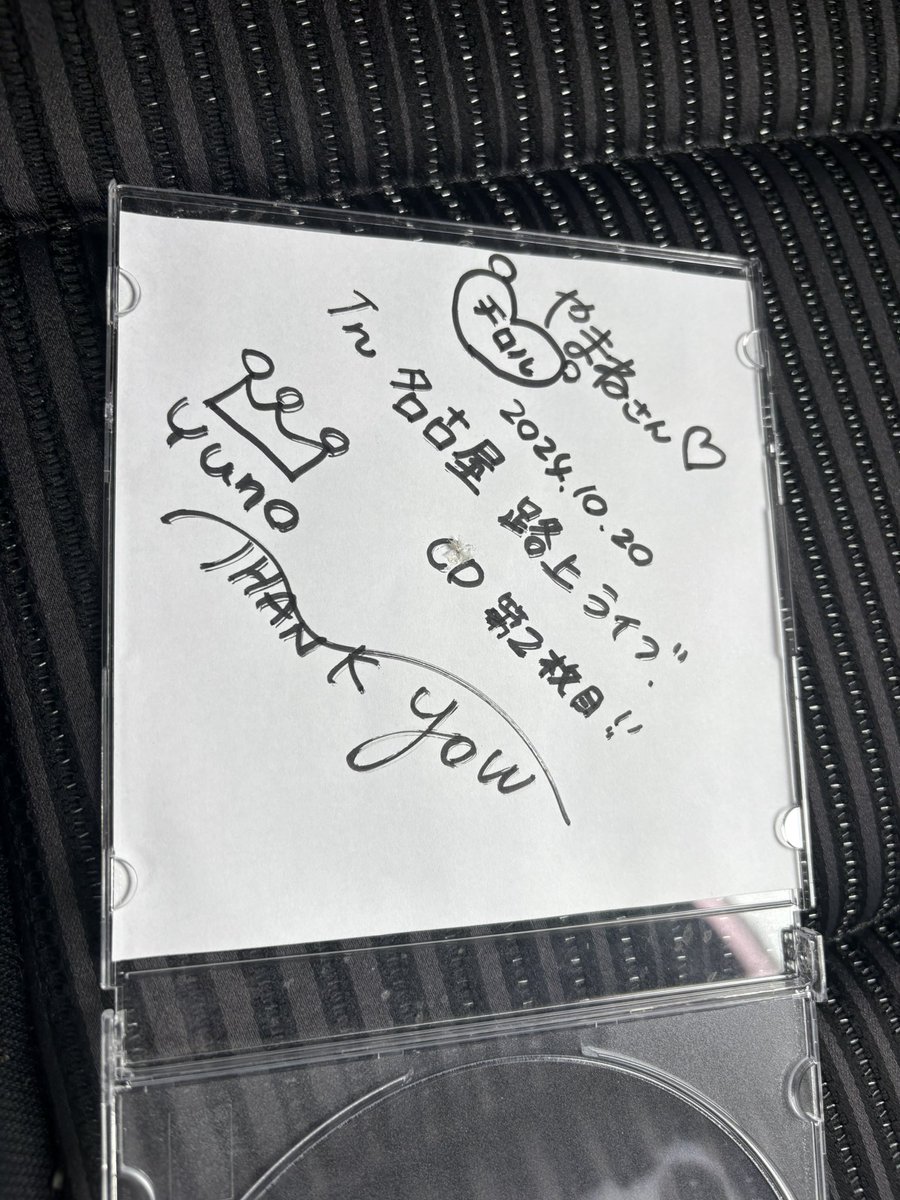 やまねさん♡
チロル
2024.10.20
In 名古屋 路上ライブ.
CD 第2枚目!!
yuno
THANK YOU